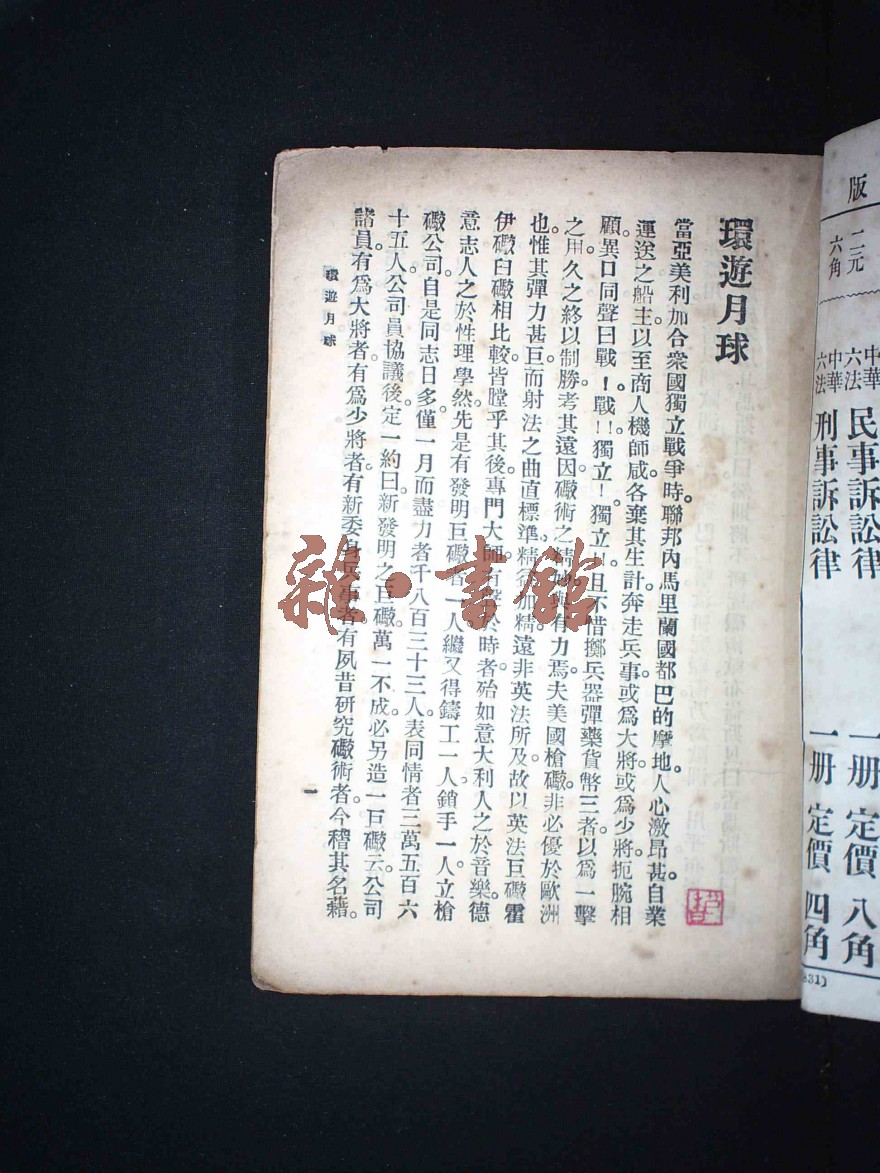 版
二元
六角
中華六法
民事訴訟律
一册
定價
八角
中華六法
刑事訴訟律
一册
定價
四角
831)
環遊月球
當亞美利加合衆國獨立戰爭時。聯邦內馬里蘭國都巴的摩地人心激昂甚。自業
運送之船主以至商人機師咸各棄其生計奔走兵事或爲大將或爲少將扼腕相
顧異口同聲曰戰！戰!!獨立！獨立!!且不惜擲兵器彈藥貨幣三者以爲一擊
之用久之終以制勝考其遠因礮術之精與有力焉夫美國槍礮非必優於歐洲
也。惟其彈力甚巨而射法之曲直標準精行加精。遠非英法所及故以英法巨礮霍
伊礮臼礮相比較皆瞠乎其後專門大師於時者殆如意大利人之於音樂。德
意志人之於性理學然。先是有發明巨礮者一人繼又得鑄工一人鎖手一人立槍
礮公司。自是同志日多。僅一月而盡力者千八百三十三人表同情者三萬五百六
十五人。公司員協議後定一約曰新發明之巨礮萬一不成必另造一巨礮云。公司
諸員有爲大將者有爲少將者有新委身兵事者有夙昔研究礮術者今稽其名藉。
環遊月球
一
雜·書館